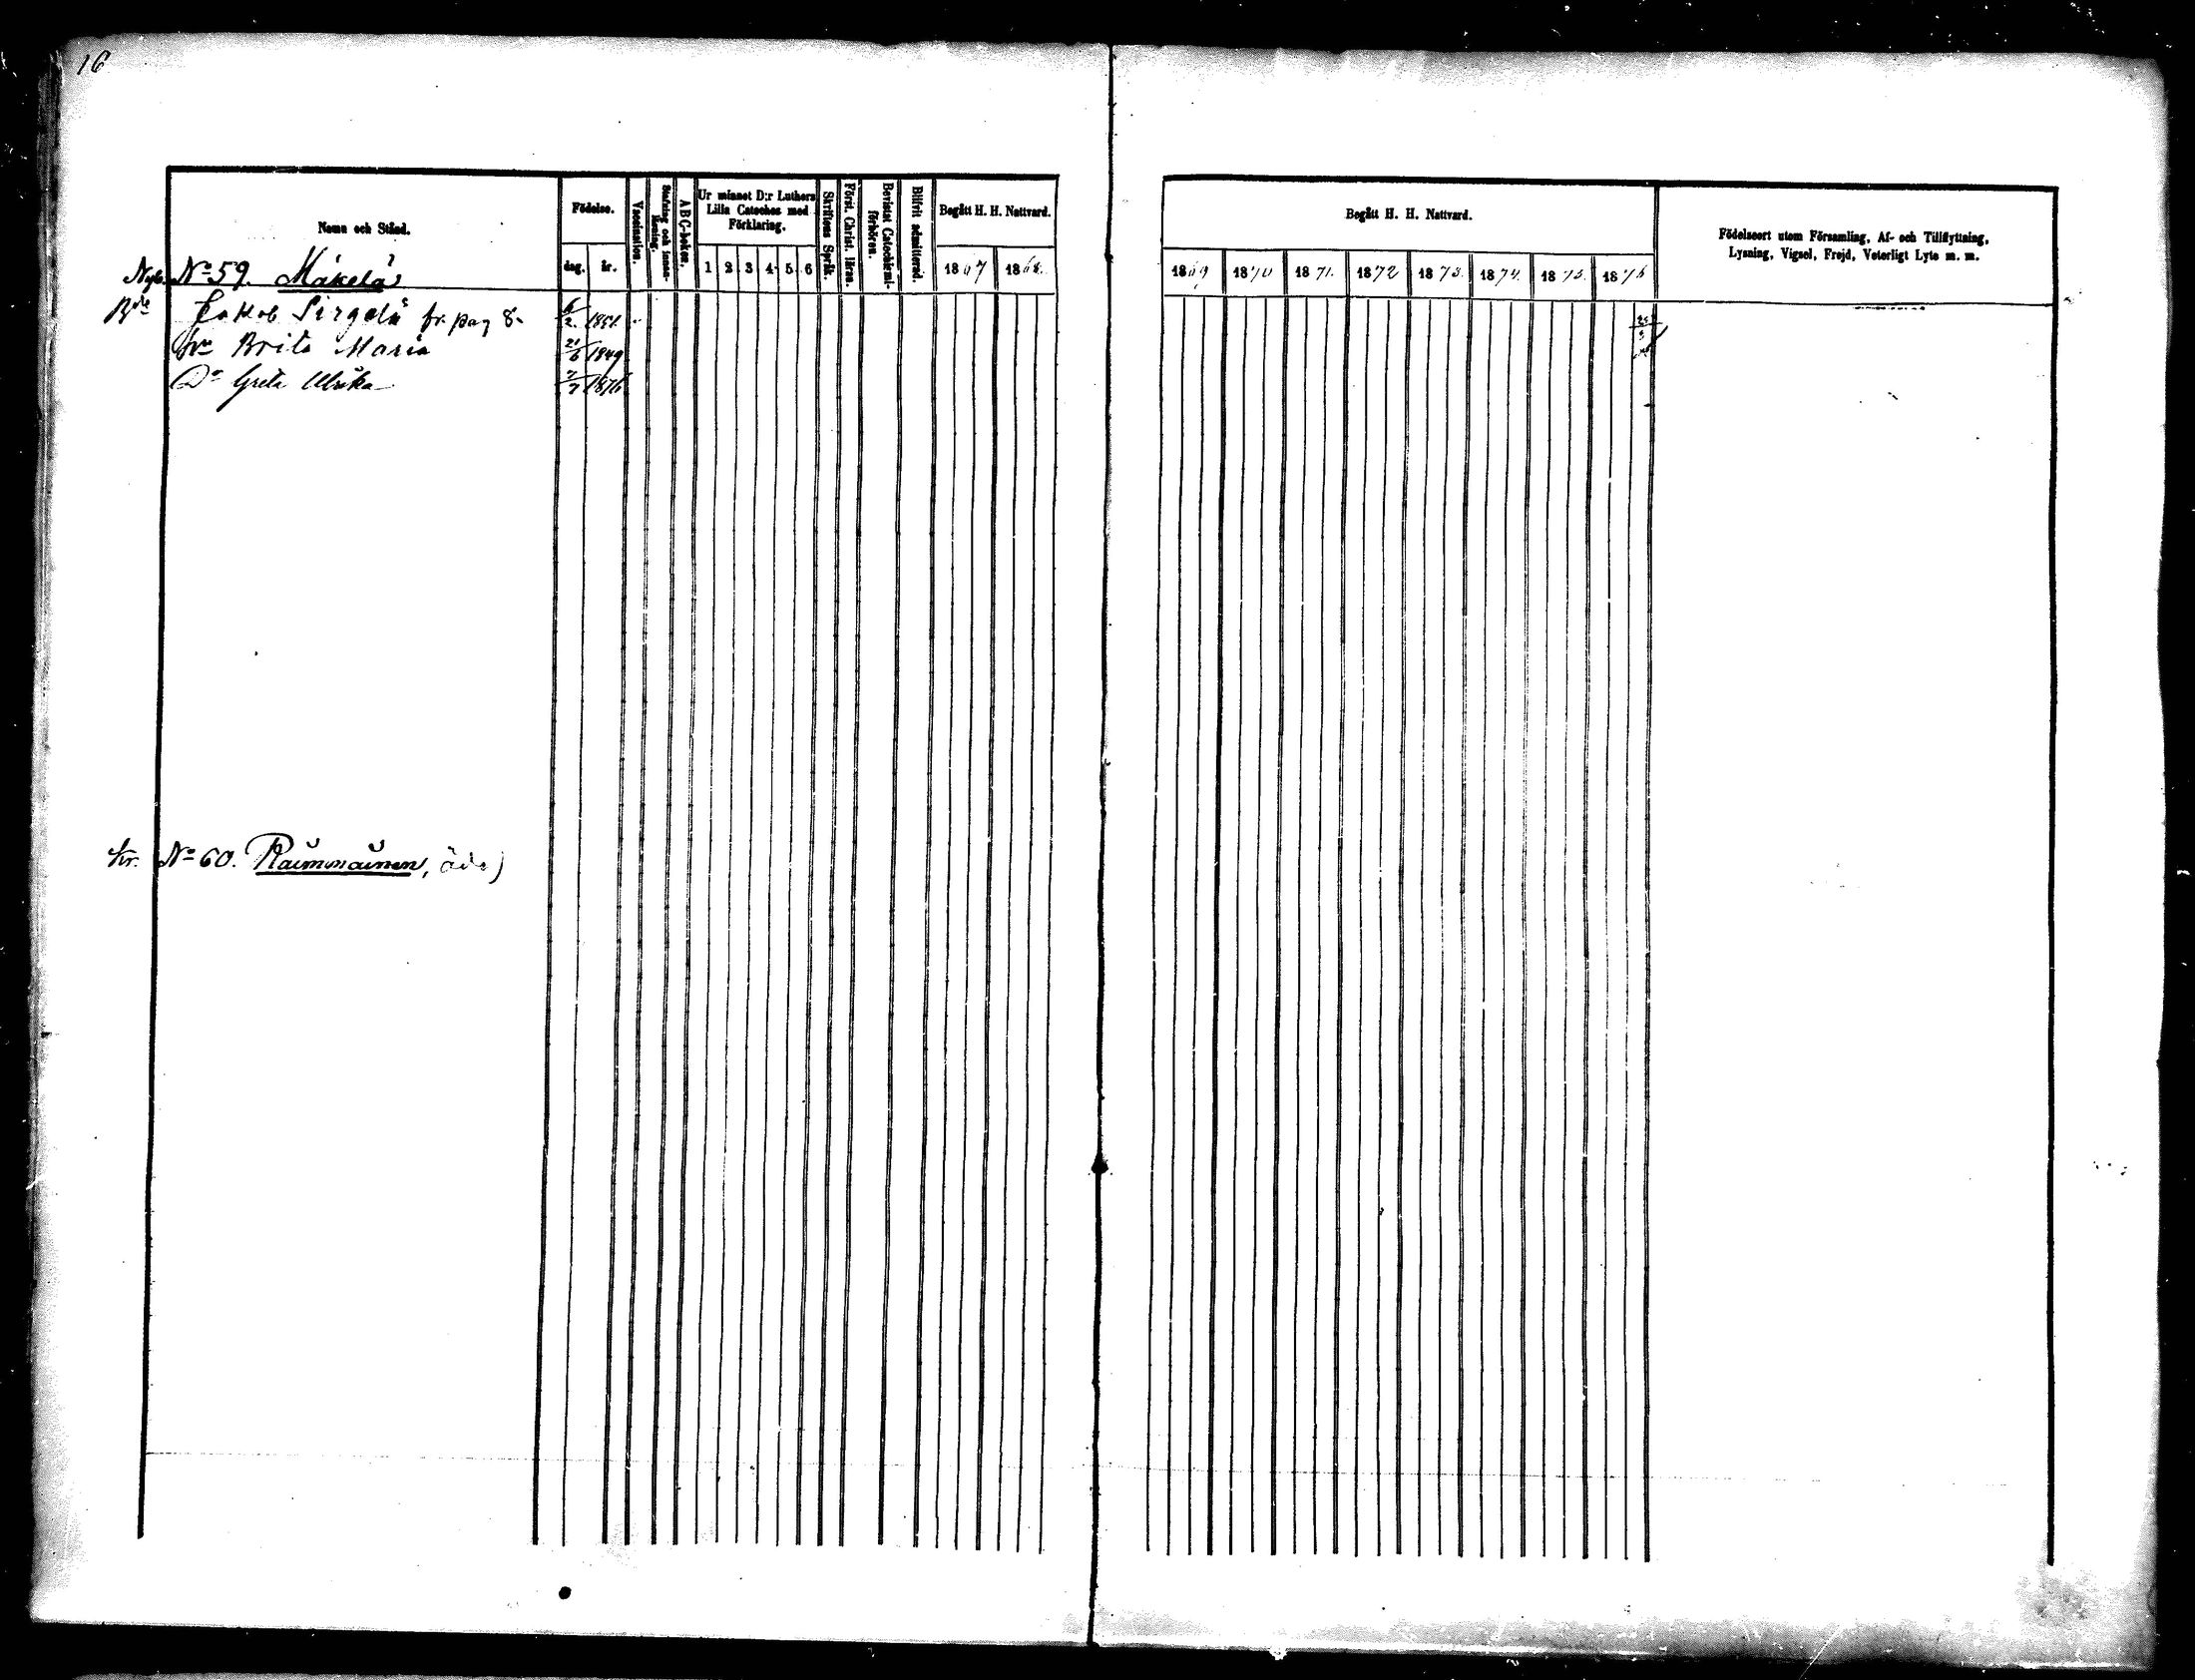 16
Namn och Stånd.
Födelse.
dag. år.
Vaccination.
Stafning och innan-läsning.
ABC-boken.
Ur minnet D:r Luthers Lilla Cateches med Förklaring.
1 2 3 4 5 6
Skriftens Språk.
Först. Christ. läran.
Bevistat Catechismi-förhören.
Blifvit admitterad.
Begått H. H. Nattvard.
1867 1868.
Begått H. H. Nattvard.
1869 1870 1871. 1872 1873. 1874. 1875. 1876
Födelseort utom Församling, Af- och Tillflyttning,
Lysning, Vigsel, Frejd, Veterligt Lyte m. m.
Nyb. No 59. Mäkelä
Bde Jakob Sirgelä fr. pag 8. 6/2. 1851.
hu Brita Maria 21/6 1849
Dr Greta Ulrika 7/7 1876
Kr. No 60. Räimmäinen, öde)